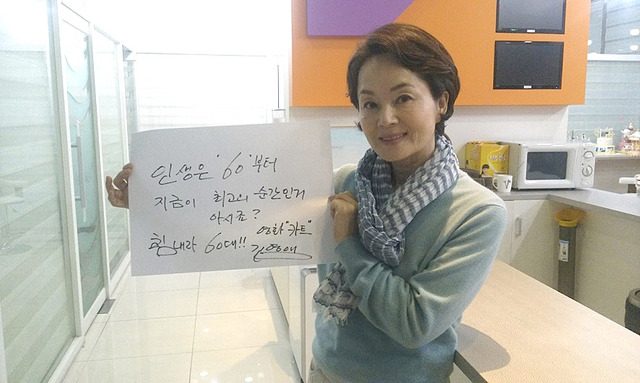 인생은 '60'부터
지금이 최고의 순간인거
아시죠?
영화 "카트"
힘내라 60대!! 김영애